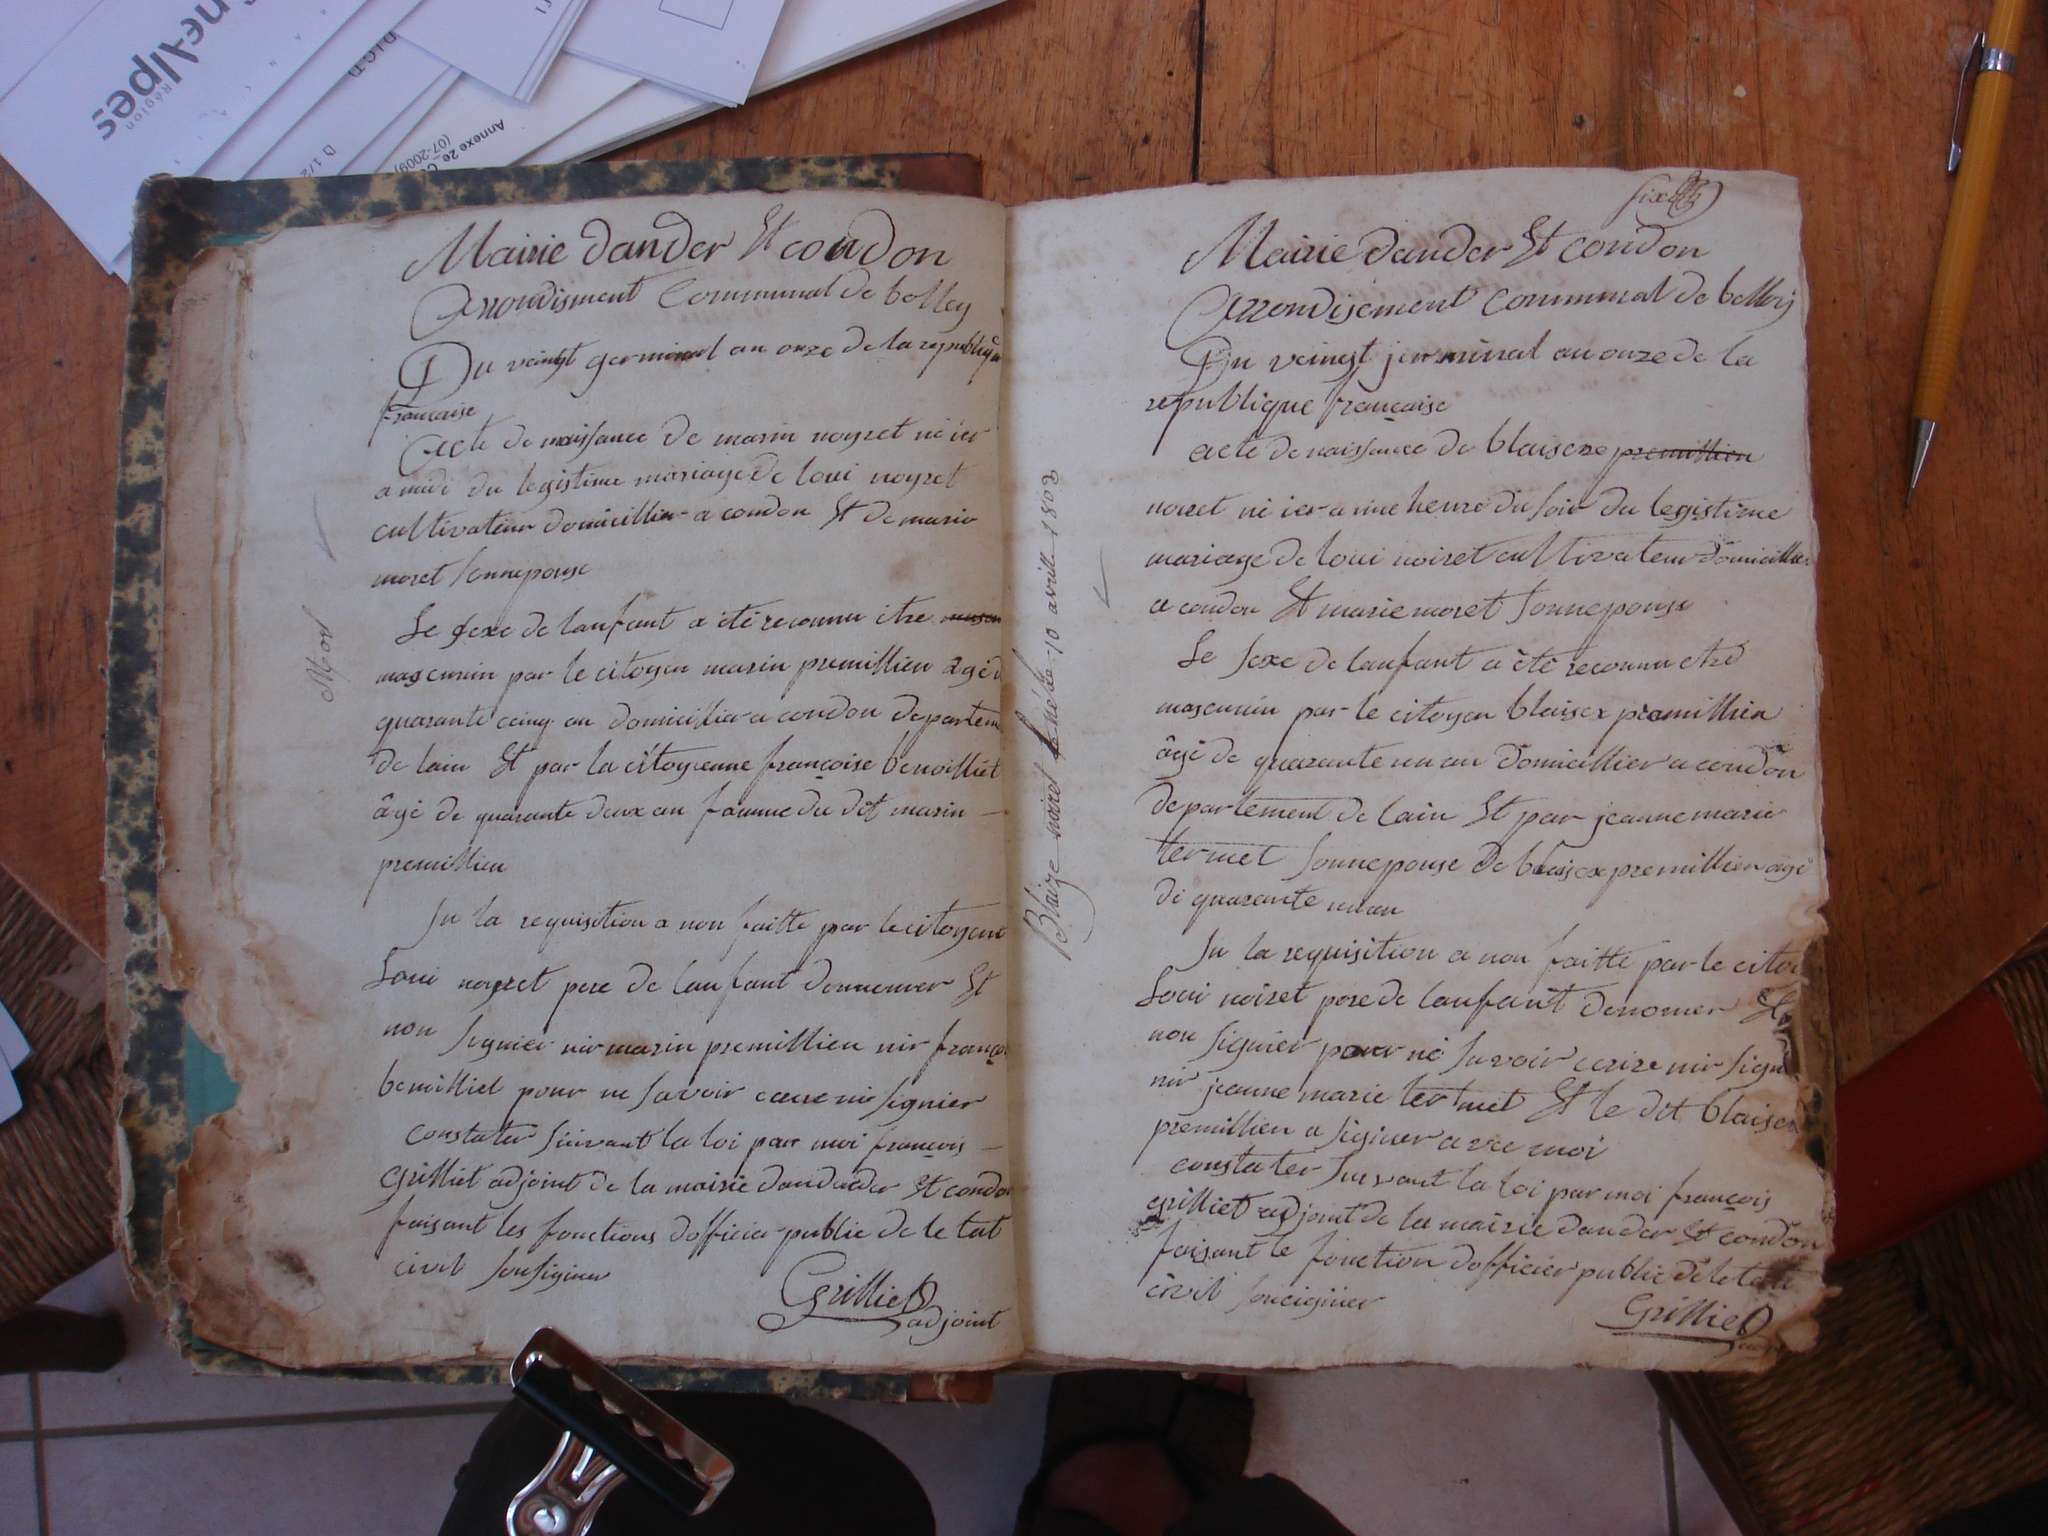 neAlpes
Région
D I C T
D 1/2
Annexe 2e
(07-2009)
Mairie dander Et condon
Arrondisment Communal de belley
Du veingt germinal an onze de la republique
francaise
acte de naissance de marin noyret né ier
a midi du legistime mariage de loui noyret
cultivateur domicillier a condon Et de marie
moret sonnepouse
Le sexe de lanfant a été reconnu etre
mascunin par le citoyen marin premillien agé d
quarante cinq an domicilier a condon departem
de lain Et par la citoyenne françoise benoilliet
âgé de quarante deux an famme du dit marin
premillien
Su la requisition a nou faitte par le citoyent
Loui noyret pere de lanfant dennomer Et
non signier nir marin premillien nir françoi
pour ne savoir ecrire nir signier
constater suivant la loi par moi françois
Grilliet adjoint de la mairie dandeder Et condon
faisant les fonctions dofficier public de le tat
civil sousigner
Grilliet
adjoint
Mort
Blaize noiret né le 10 avrill 1803
six
Mairie dander Et condon
Arrondisement communal de belley
Du veingt jerminal an onze de la
republique française
acte de naissance de blaise premillien
noiret né ier a une heure du soir du legistime
mariage de loui noiret cultivateur domicillier
a condon Et marie moret sonnepouse
Le sexe de lanfant a été reconnu etre
mascunin par le citoyen blaise premillien
âgé de quarante un an domicillier a condon
departement de lain Et par jeanne marie
termet sonnepouse de blaise premillien agé
de quarante un an
Su la requisition a nou faitte par le citoy
Loui noiret pere de lanfant denomer Et
non signier pour né savoir ecrire nir sign
nir jeanne marie termet Et le dit blaise
premillien a siginer avec moi
constater suivant la loi par moi françois
grilliet adjoint de la mairie dander Et condon
faisant le fonction dofficier public de le tat
civil souciginer
Grilliet